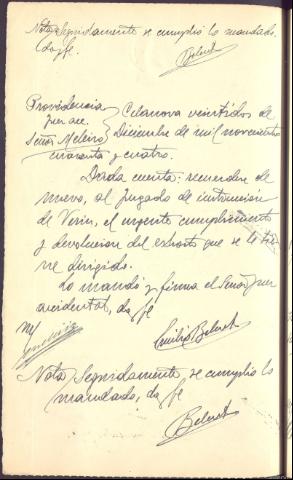 Nota/ Seguidamente se cumplio lo mandado.
doy fe.
Providencia
Juez acc.
Señor Meleiro
Celanova veintidos de
Diciembre de mil novecientos
cuarenta y cuatro.
Dada cuenta: recuerdese de
nuevo, al Juzgado de instrucción
de Verin, el urgente cumplimiento
y devolucion del exhorto que se le tie
ne dirigido.
Lo mandó y firma el Señor Juez
accidental, doy fe
Nota/ Seguidamente se cumplio lo
mandado, doy fe